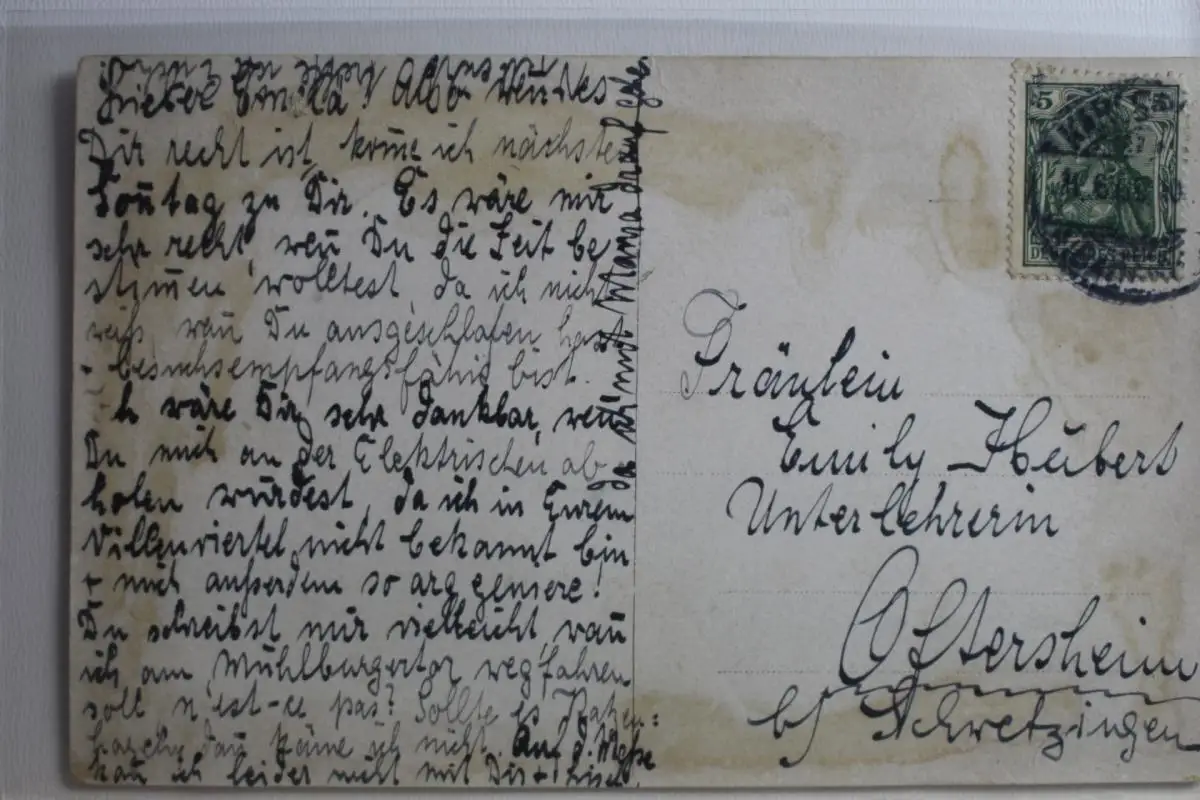 Dir recht ist, kom̅e ich nächsten
Son̅tag zu Dir. Es wäre mir
sehr recht, wen̅ Du die Zeit be
stim̅en wolltest, da ich nicht
weiß, wan̅ Du ausgeschlafen hast
+ besuchsempfangsfähig bist.
Ich wäre Dir sehr dankbar, wen̅
Du mich an der Elektrischen ab
holen würdest, da ich in Eurem
Villenviertel nicht bekannt bin
+ mich außerdem so arg geniere!
Du schreibst mir vielleicht, wan̅
ich am Mühlburgertor wegfahren
soll n'est-ce pas? Sollte es
dan̅ käme ich nicht. Auf d. Messe
kan̅ ich leider nicht mit Dir +
da nicht Mama drauf
Fräulein
Emily Hübert
Unterlehrerin
Oftersheim
b/ Schwetzingen
5 5